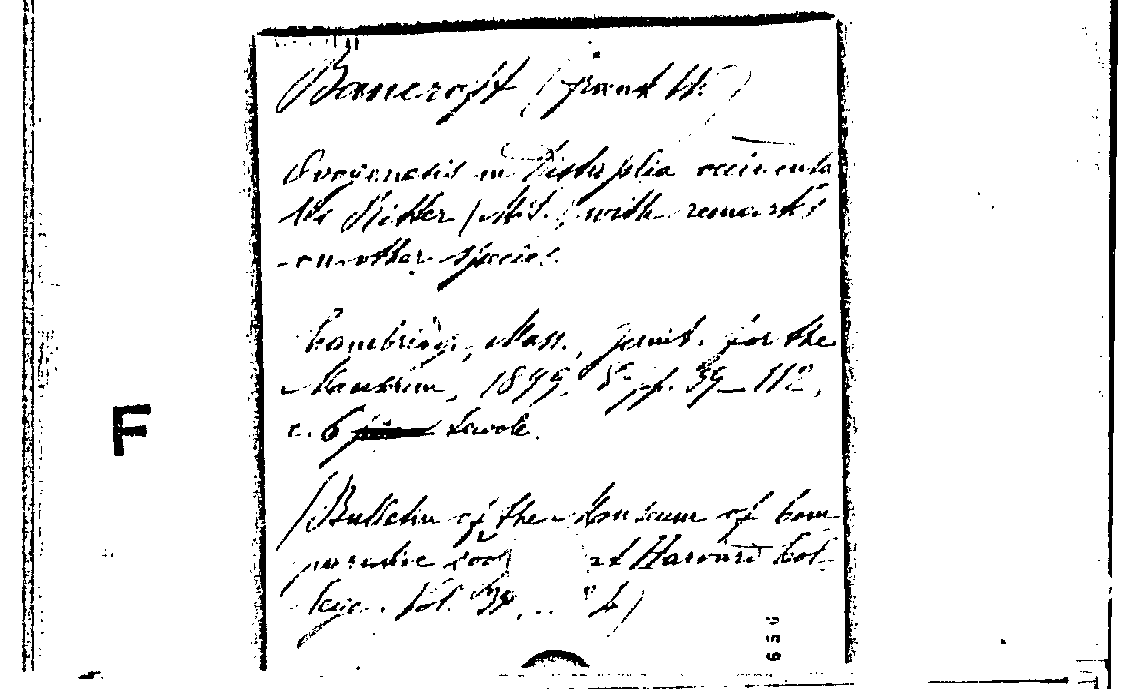 Bancroft (Frank W.)
Ovogenesis in Distaplia occidenta
lis Ritter (MS.) with remarks
on other species.
Cambridge, Mass., print. for the
Museum, 1899. 8° pp. 59–112,
c. 6 tavole.
(Bulletin of the Museum of Com
parative zool at Harvard Col-
lege. Vol. 35,
F